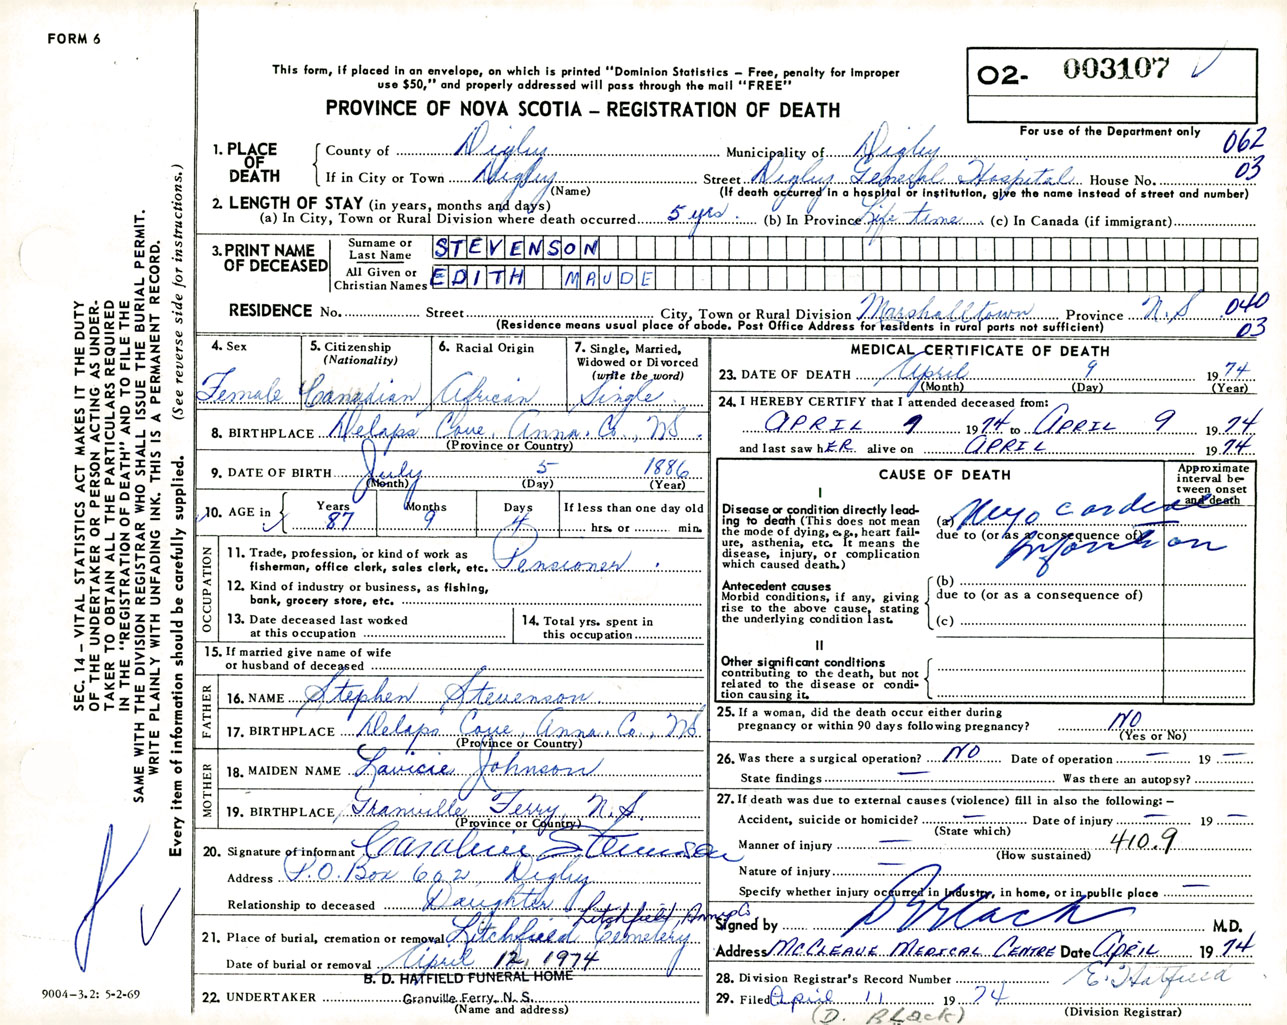 FORM 6
This form, if placed in an envelope, on which is printed "Dominion Statistics – Free, penalty for improper
use $50," and properly addressed will pass through the mail "FREE"
O2- 003107
PROVINCE OF NOVA SCOTIA – REGISTRATION OF DEATH
For use of the Department only
062
03
1. PLACE OF DEATH
County of Digby Municipality of Digby
If in City or Town Digby Street Digby General Hospital House No.
(Name) (If death occurred in a hospital or institution, give the name instead of street and number)
2. LENGTH OF STAY (in years, months and days)
(a) In City, Town or Rural Division where death occurred 5 yrs. (b) In Province Life time (c) In Canada (if immigrant)
3. PRINT NAME OF DECEASED
Surname or Last Name STEVENSON
All Given or Christian Names EDITH MAUDE
RESIDENCE No. Street City, Town or Rural Division Marshalltown Province N.S 040
(Residence means usual place of abode. Post Office Address for residents in rural parts not sufficient) 03
4. Sex Female
5. Citizenship (Nationality) Canadian
6. Racial Origin African
7. Single, Married, Widowed or Divorced (write the word) Single
8. BIRTHPLACE Delaps Cove, Anna. Co., NS.
(Province or Country)
9. DATE OF BIRTH July 5 1886
(Month) (Day) (Year)
10. AGE in Years 87 Months 9 Days 4 If less than one day old hrs. or min.
OCCUPATION
11. Trade, profession, or kind of work as
fisherman, office clerk, sales clerk, etc. Pensioner.
12. Kind of industry or business, as fishing,
bank, grocery store, etc.
13. Date deceased last worked
at this occupation
14. Total yrs. spent in
this occupation
15. If married give name of wife
or husband of deceased
FATHER
16. NAME Stephen Stevenson
17. BIRTHPLACE Delaps Cove, Anna. Co., NS
(Province or Country)
MOTHER
18. MAIDEN NAME Lavicie Johnson
19. BIRTHPLACE Granville Ferry, N.S.
(Province or Country)
20. Signature of informant Caroline Stevenson
Address P.O. Box 602 Digby
Relationship to deceased Daughter
Litchfield, Anna Co
21. Place of burial, cremation or removal Litchfield Cemetery
Date of burial or removal April 12, 1974
B. D. HATFIELD FUNERAL HOME
22. UNDERTAKER Granville Ferry, N. S.
(Name and address)
MEDICAL CERTIFICATE OF DEATH
23. DATE OF DEATH April 9 1974
(Month) (Day) (Year)
24. I HEREBY CERTIFY that I attended deceased from:
APRIL 9 1974 to APRIL 9 1974
and last saw hER alive on APRIL 1974
CAUSE OF DEATH
Approximate interval between onset and death
I
Disease or condition directly leading to death (This does not mean the mode of dying, e.g., heart failure, asthenia, etc. It means the disease, injury, or complication which caused death.)
(a) Myo cardial
due to (or as a consequence of)
Infarction
Antecedent causes
Morbid conditions, if any, giving rise to the above cause, stating the underlying condition last.
(b)
due to (or as a consequence of)
(c)
II
Other significant conditions contributing to the death, but not related to the disease or condition causing it.
25. If a woman, did the death occur either during
pregnancy or within 90 days following pregnancy? NO
(Yes or No)
26. Was there a surgical operation? NO Date of operation — 19 —
State findings — Was there an autopsy?
27. If death was due to external causes (violence) fill in also the following: –
Accident, suicide or homicide? — Date of injury — 19 —
(State which)
Manner of injury — 410.9
(How sustained)
Nature of injury —
Specify whether injury occurred in industry, in home, or in public place —
Signed by D Black M.D.
Address McCLEAVE MEDICAL CENTRE Date APRIL 1974
28. Division Registrar's Record Number
E. Hatfield
29. Filed April 11 1974
(D. BLACK) (Division Registrar)
SEC. 14 – VITAL STATISTICS ACT MAKES IT THE DUTY
OF THE UNDERTAKER OR PERSON ACTING AS UNDER-
TAKER TO OBTAIN ALL THE PARTICULARS REQUIRED
IN THE "REGISTRATION OF DEATH" AND TO FILE THE
SAME WITH THE DIVISION REGISTRAR WHO SHALL ISSUE THE BURIAL PERMIT.
WRITE PLAINLY WITH UNFADING INK. THIS IS A PERMANENT RECORD.
Every item of information should be carefully supplied. (See reverse side for instructions.)
9004-3.2: 5-2-69